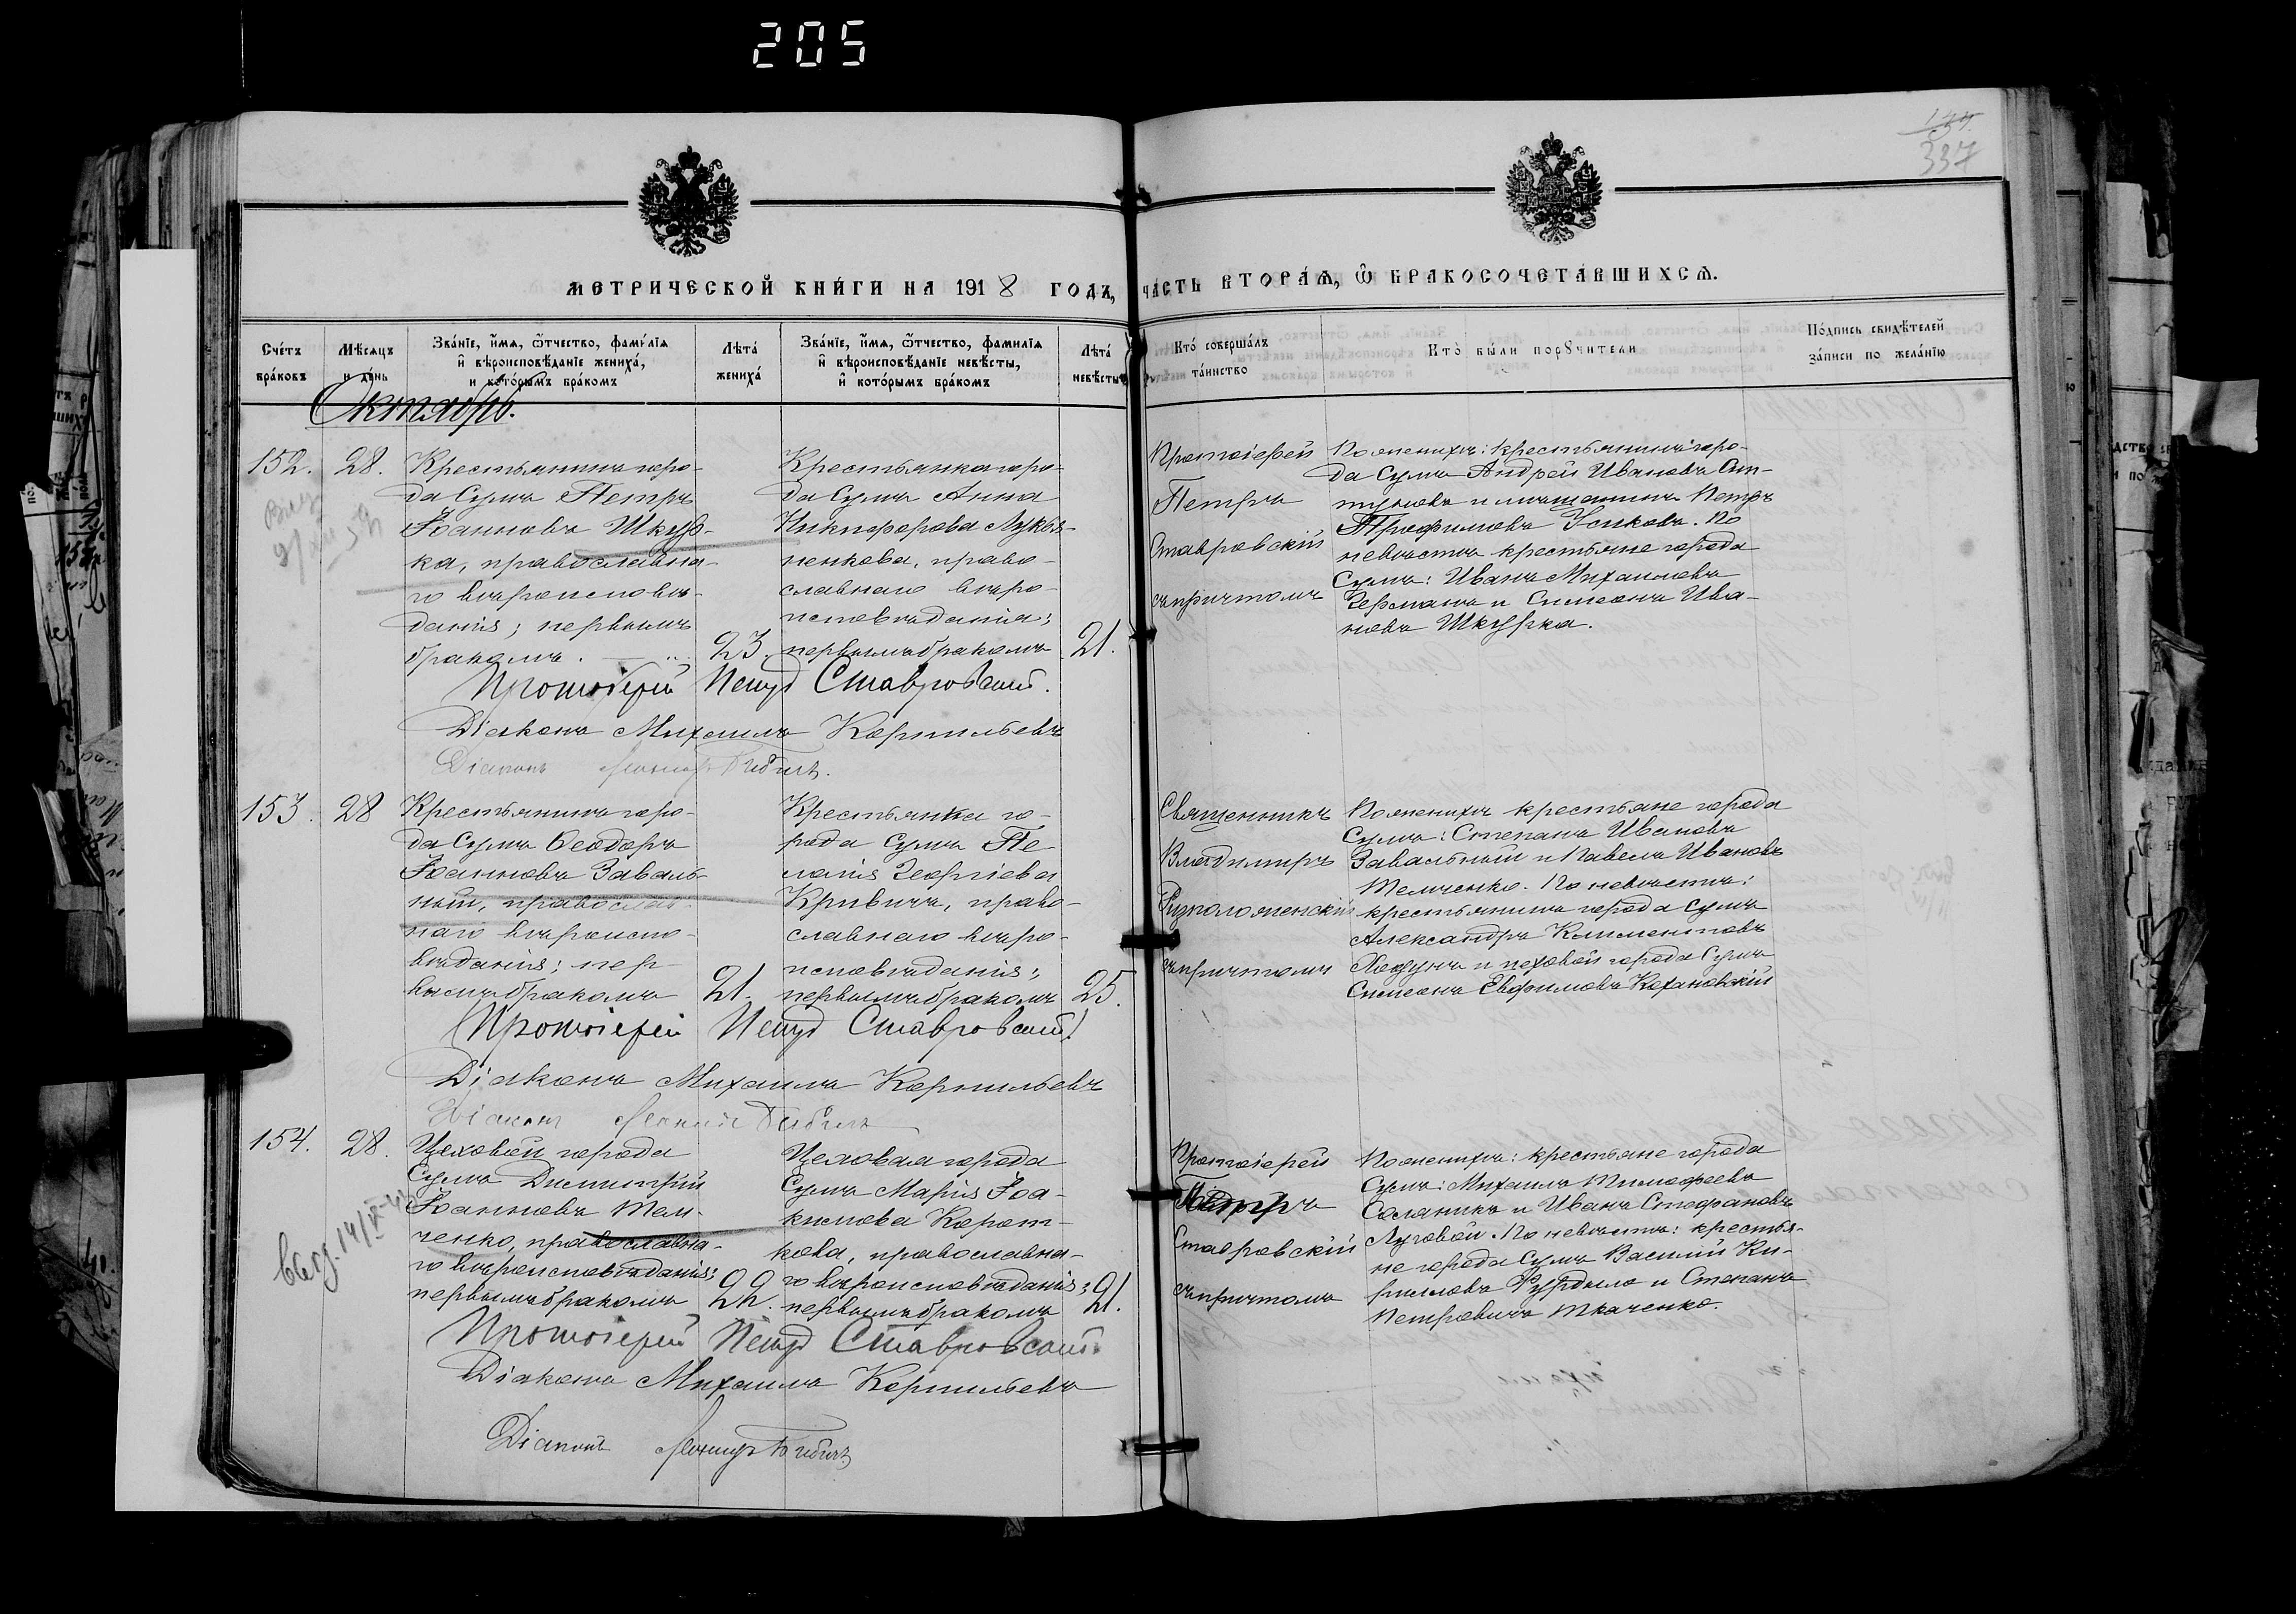 205
337
МЕТРИЧЕСКОЙ КНИГИ НА 1918 ГОДЪ, ЧАСТЬ ВТОРАЯ, Ѿ БРАКОСОЧЕТАВШИХСЯ.
Счетъ браковъ
Мѣсяцъ и день
Званіе, имя, ѿчество, фамилія и вѣроисповѣданіе жениха, и которымъ бракомъ
Лѣта жениха
Званіе, имя, ѿчество, фамилія и вѣроисповѣданіе невѣсты, и которымъ бракомъ
Лѣта невѣсты
Кто совершалъ таинство
Кто были порꙋчители
Подпись свидѣтелей записи по желанію
Октябрь.
152.
28.
Крестьянинъ горо-
да Сумъ Петръ
Іоанновъ Шкур-
ка, православна-
го вѣроисповѣ-
данія; первымъ
бракомъ.
23.
Крестьянка горо-
да Сумъ Анна
Никифорова Лукья-
ненкова, право-
славнаго вѣро-
исповѣданія;
первымъ бракомъ
21.
Протоіерей
Петръ
Ставровскій
съ причтомъ
По женихѣ: крестьянинъ горо-
да Сумъ Андрей Ивановъ
и мѣщанинъ Петръ
Трофимовъ Усиковъ. По
невѣстѣ крестьяне города
Сумъ: Иванъ Михаиловъ
Германъ и Симеонъ Ива-
новъ Шкурка.
Протоіерей Петръ Ставровскій.
Діаконъ Михаилъ Корнильевъ
Діаконъ
153.
28
Крестьянинъ горо-
да Сумъ Ѳеодоръ
Іоанновъ Заваль-
ный, православ-
наго вѣроиспо-
вѣданія; пер-
вымъ бракомъ
21.
Крестьянка го-
рода Сумъ Пе-
лагія Георгіева
Кривичъ, право-
славнаго вѣро-
исповѣданія;
первымъ бракомъ
25.
Священникъ
Владимиръ
Ризположенскій
съ причтомъ
По женихѣ крестьяне города
Сумъ: Степанъ Ивановъ
Завальный и Павелъ Ивановъ
Темченко. По невѣстѣ:
крестьянинъ города Сумъ
Александръ Климентовъ
и цеховой города Сумъ
Симеонъ Евфимовъ Кохановскій
Протоіерей Петръ Ставровскій
Діаконъ Михаилъ Корнильевъ
Діаконъ
154.
28.
Цеховой города
Сумъ Димитрій
Іоанновъ Тем-
ченко, православна-
го вѣроисповѣданія;
первымъ бракомъ
22.
Цеховая города
Сумъ Марія Іоа-
кимова Корот-
кова, православна-
го вѣроисповѣданія;
первымъ бракомъ
21.
Протоіерей
Петръ
Ставровскій
съ причтомъ
По женихѣ: крестьяне города
Сумъ: Михаилъ Тимофеевъ
Соляникъ и Иванъ Стефановъ
Луговой. По невѣстѣ: крестья-
не города Сумъ Василій Ки-
рилловъ Фурдыло и Степанъ
Петровичъ Ткаченко.
Протоіерей Петръ Ставровскій
Діаконъ Михаилъ Корнильевъ
Діаконъ